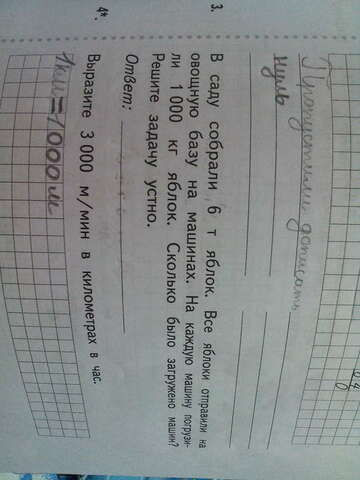 Пропустили дописать
нуль
3. В саду собрали 6 т яблок. Все яблоки отправили на
овощную базу на машинах. На каждую машину погрузи-
ли 1 000 кг яблок. Сколько было загружено машин?
Решите задачу устно.
Ответ:
4*. Выразите 3 000 м/мин в километрах в час.
1км=1000м